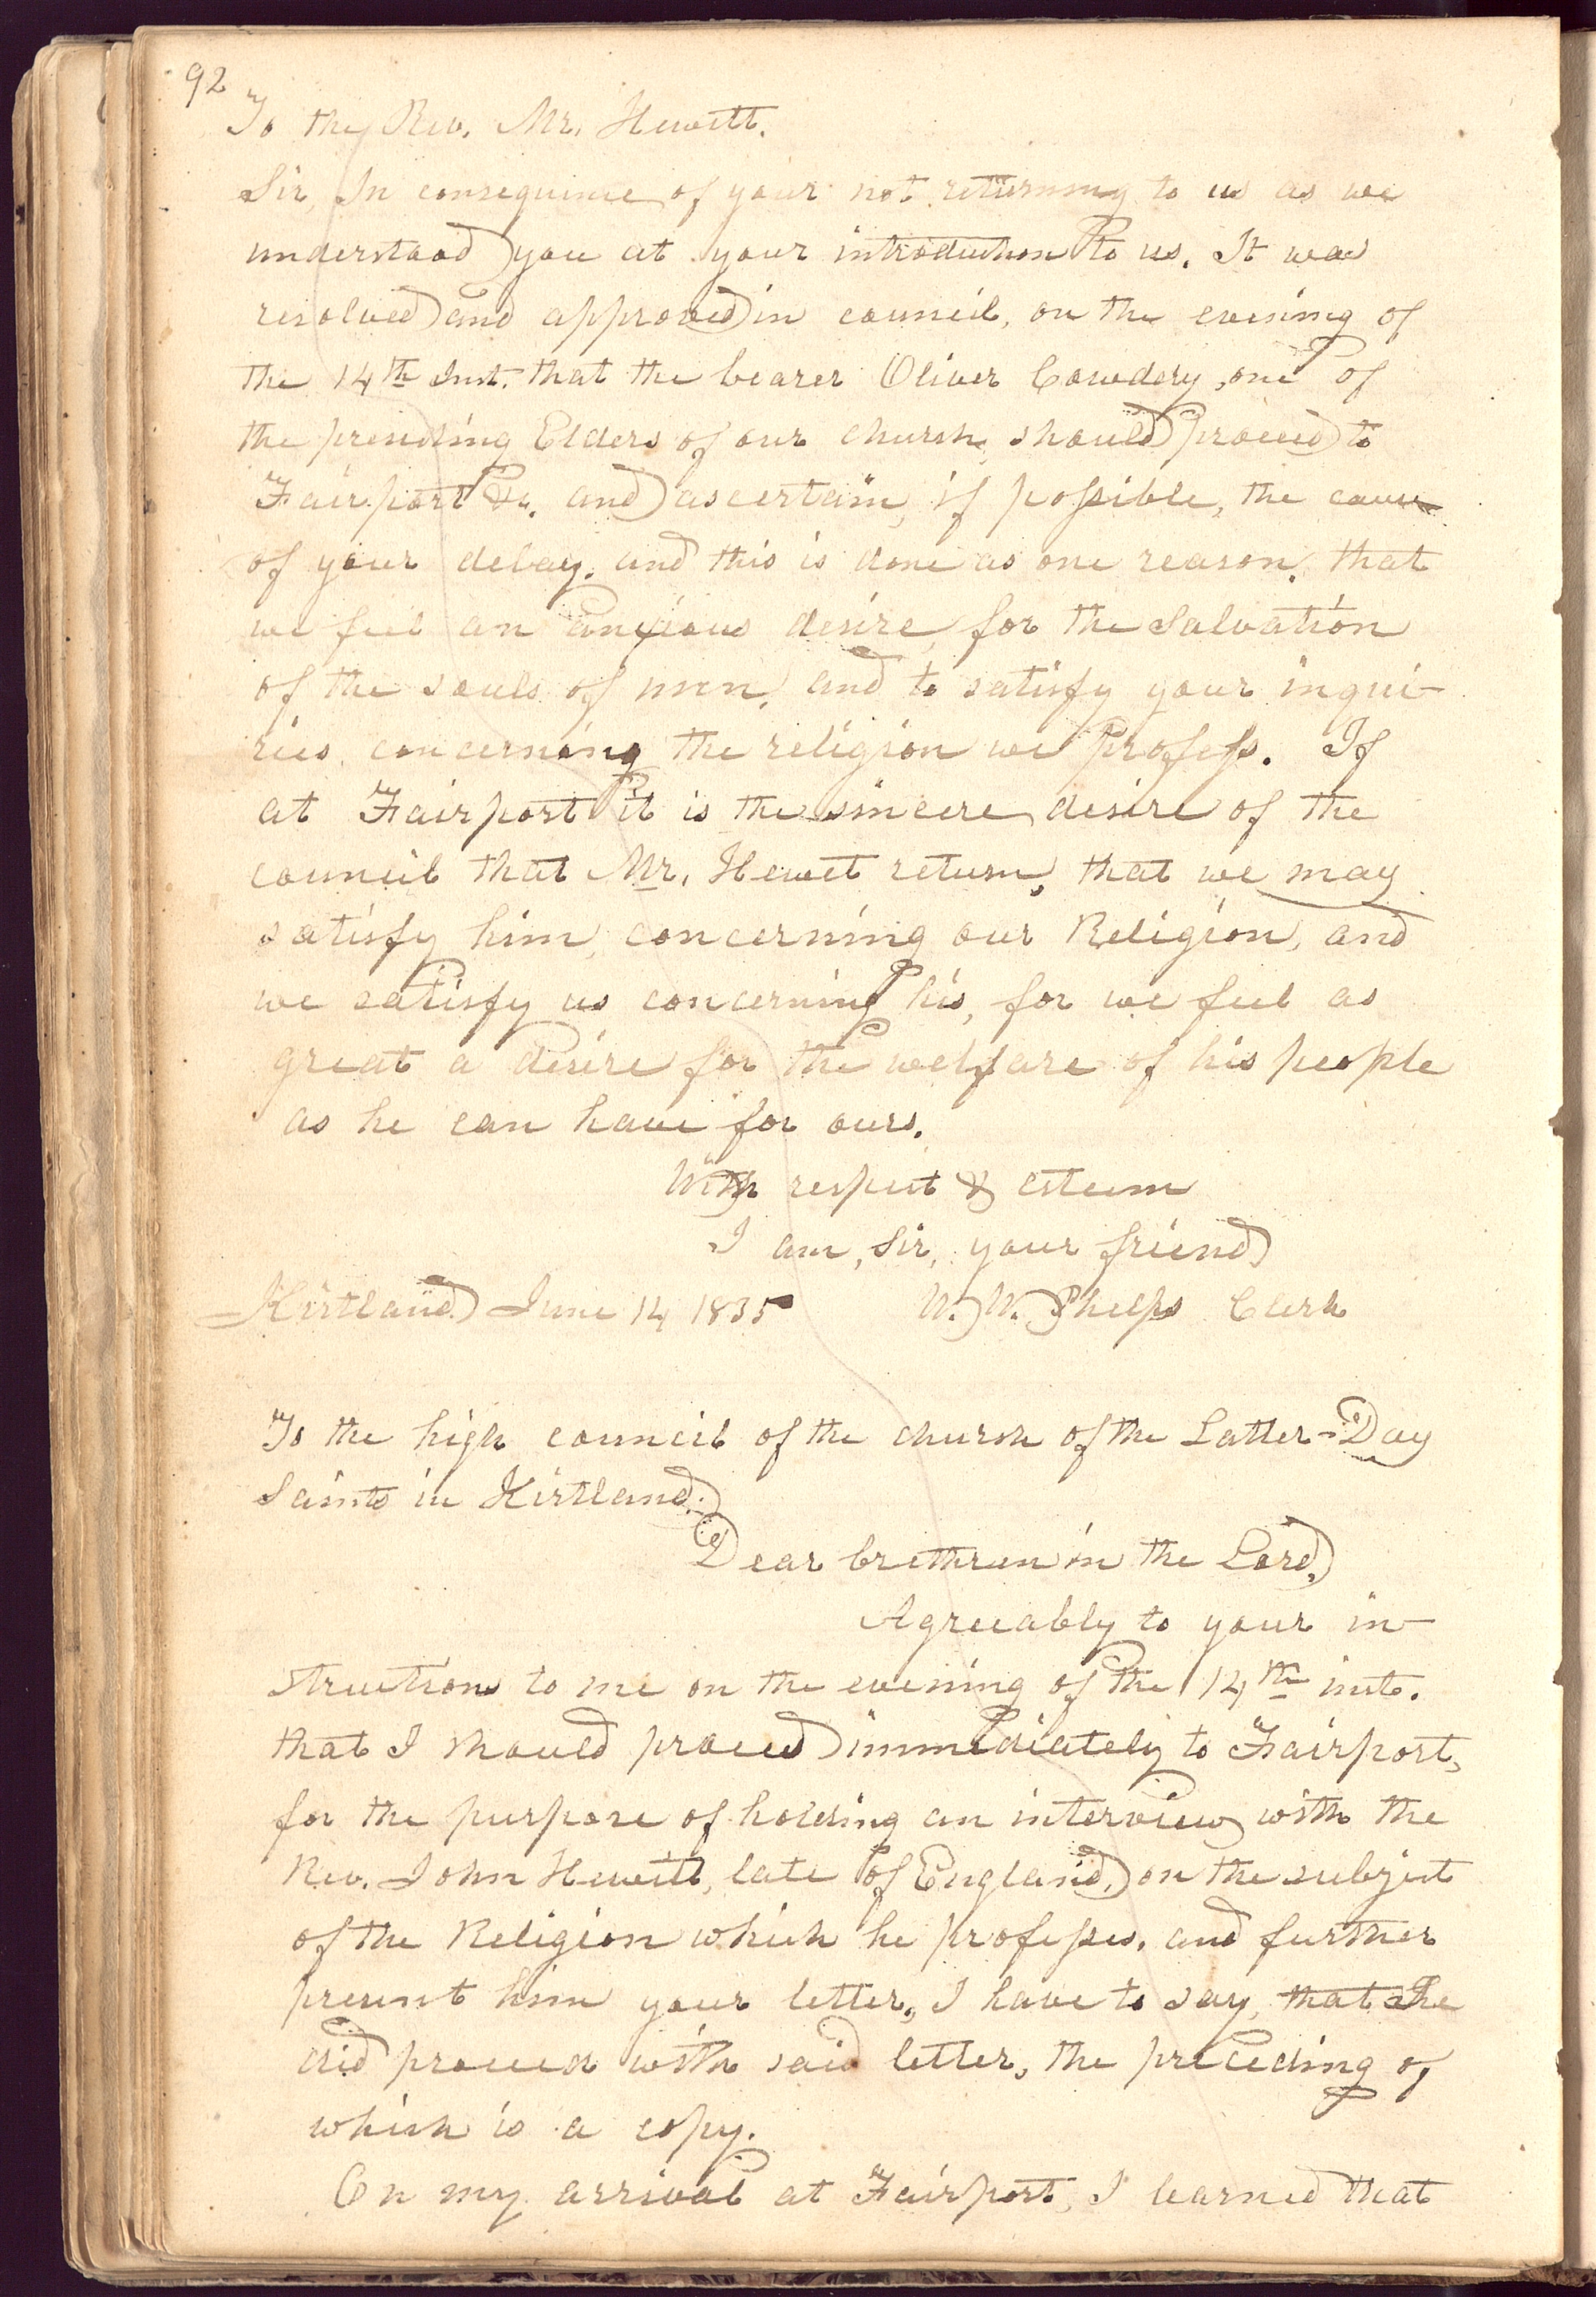 92
To the Rev. Mr. Hewitt.
Sir, In consequence of your not returning to us as we
understood you at your introduction to us. It was
resolved and approved in council, on the evening of
the 14th Inst. that the bearer Oliver Cowdery, one of
the presiding Elders of our church, should proceed to
Fairport &c. and ascertain, if possible, the cause
of your delay. and this is done as one reason, that
we feel an anxious desire, for the salvation
of the souls of men, and to satisfy your inqui-
ries, concerning the religion we profess. If
at Fairport it is the sincere desire of the
council that Mr. Hewet return, that we may
satisfy him, concerning our Religion, and
we satisfy us concerning his, for we feel as
great a desire for the welfare of his people
as he can have for ours.
With respect & esteem
I am, Sir, your friend
Kirtland June 14 1835 W. W. Phelps Clerk
To the high council of the church of the Latter-Day
Saints in Kirtland.
Dear brethren in the Lord,
Agreeably to your in-
structions to me on the evening of the 14th inst.
that I should proceed immediately to Fairport,
for the purpose of holding an interview with the
Rev. John Hewitt, late of England, on the subject
of the Religion which he professes, and further
present him your letter, I have to say, that I
did proceed with said letter, the preceding of
which is a copy.
On my arrival at Fairport, I learned that